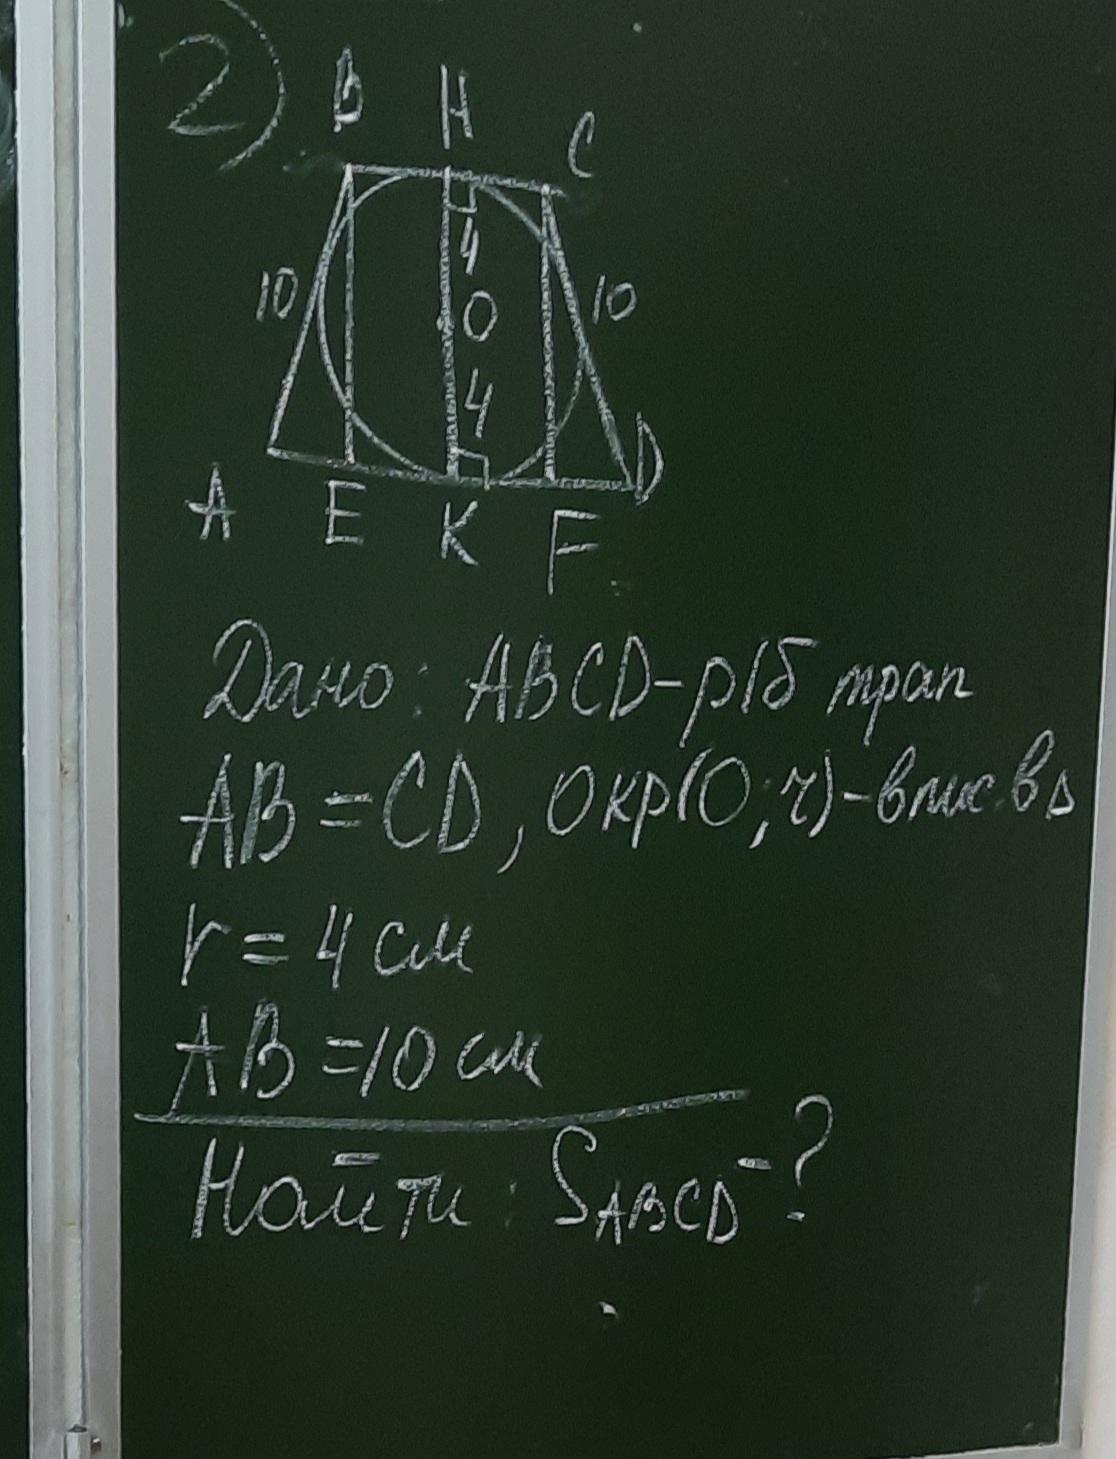 2)
B H C
4
10 O 10
4
A E K F D
Дано: ABCD-р/б трап
AB = CD, Окр(O;r)-впис. в
r = 4 см
AB = 10 см
Найти: SABCD-?